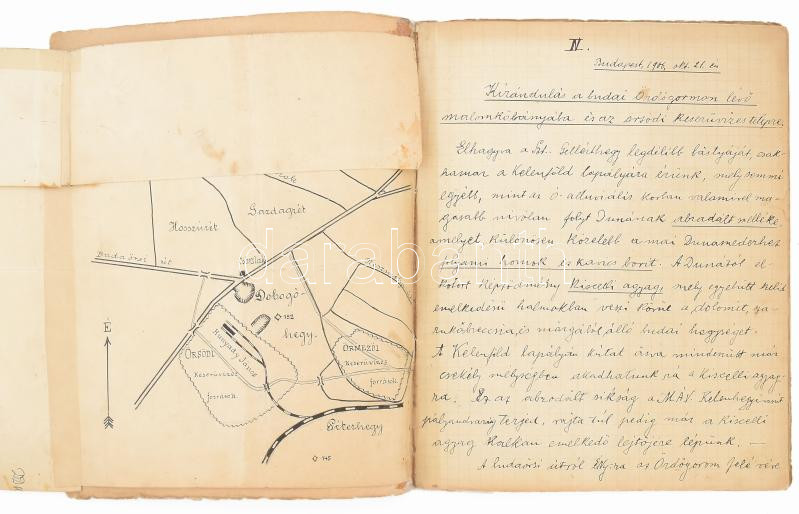 Hosszúrét
Gazdagrét
Budaörsi út
Dobogó-
hegy.
152
É
ÖRSÖDI
Hunyady János
Keserüvizes
források.
ÖRMEZŐI
Keserüvizes
források.
Péterhegy
145
darabanth
IV.
Budapest, 1906. okt. 21. én
Kirándulás a budai Ördögormon lévő
malomkőbányába és az örsödi keserüvizes telepre.
Elhagyva a Szt. Gellérthegy legdélibb bástyáját, csak-
hamar a Kelenföld lapályára érünk, mely semmi
egyébb, mint az ó-alluviális korban valamivel ma-
gasabb nívóban folyt Dunának abradált melléke
amelyet különösen közelebb a mai Dunamederhez
folyami homok és kavics borít. A Dunától el-
kotort képződmény kiscelli agyag, mely egyebütt szelid
emelkedésű halmokban veszi körül a dolomit, sza-
rukőbreccsia és márgából álló budai hegységet.
A Kelenföld lapályán kútat ásva mindenütt már
csekély mélységben akadhatunk rá a kiscelli agyag-
ra. Ez az abradált síkság a MÁV. Kelenhegyi
pályaudvaráig terjed, rajta túl pedig már a kiscelli
agyag halkan emelkedő lejtőjére lépünk. —
A budaörsi útról az Ördögorom felé